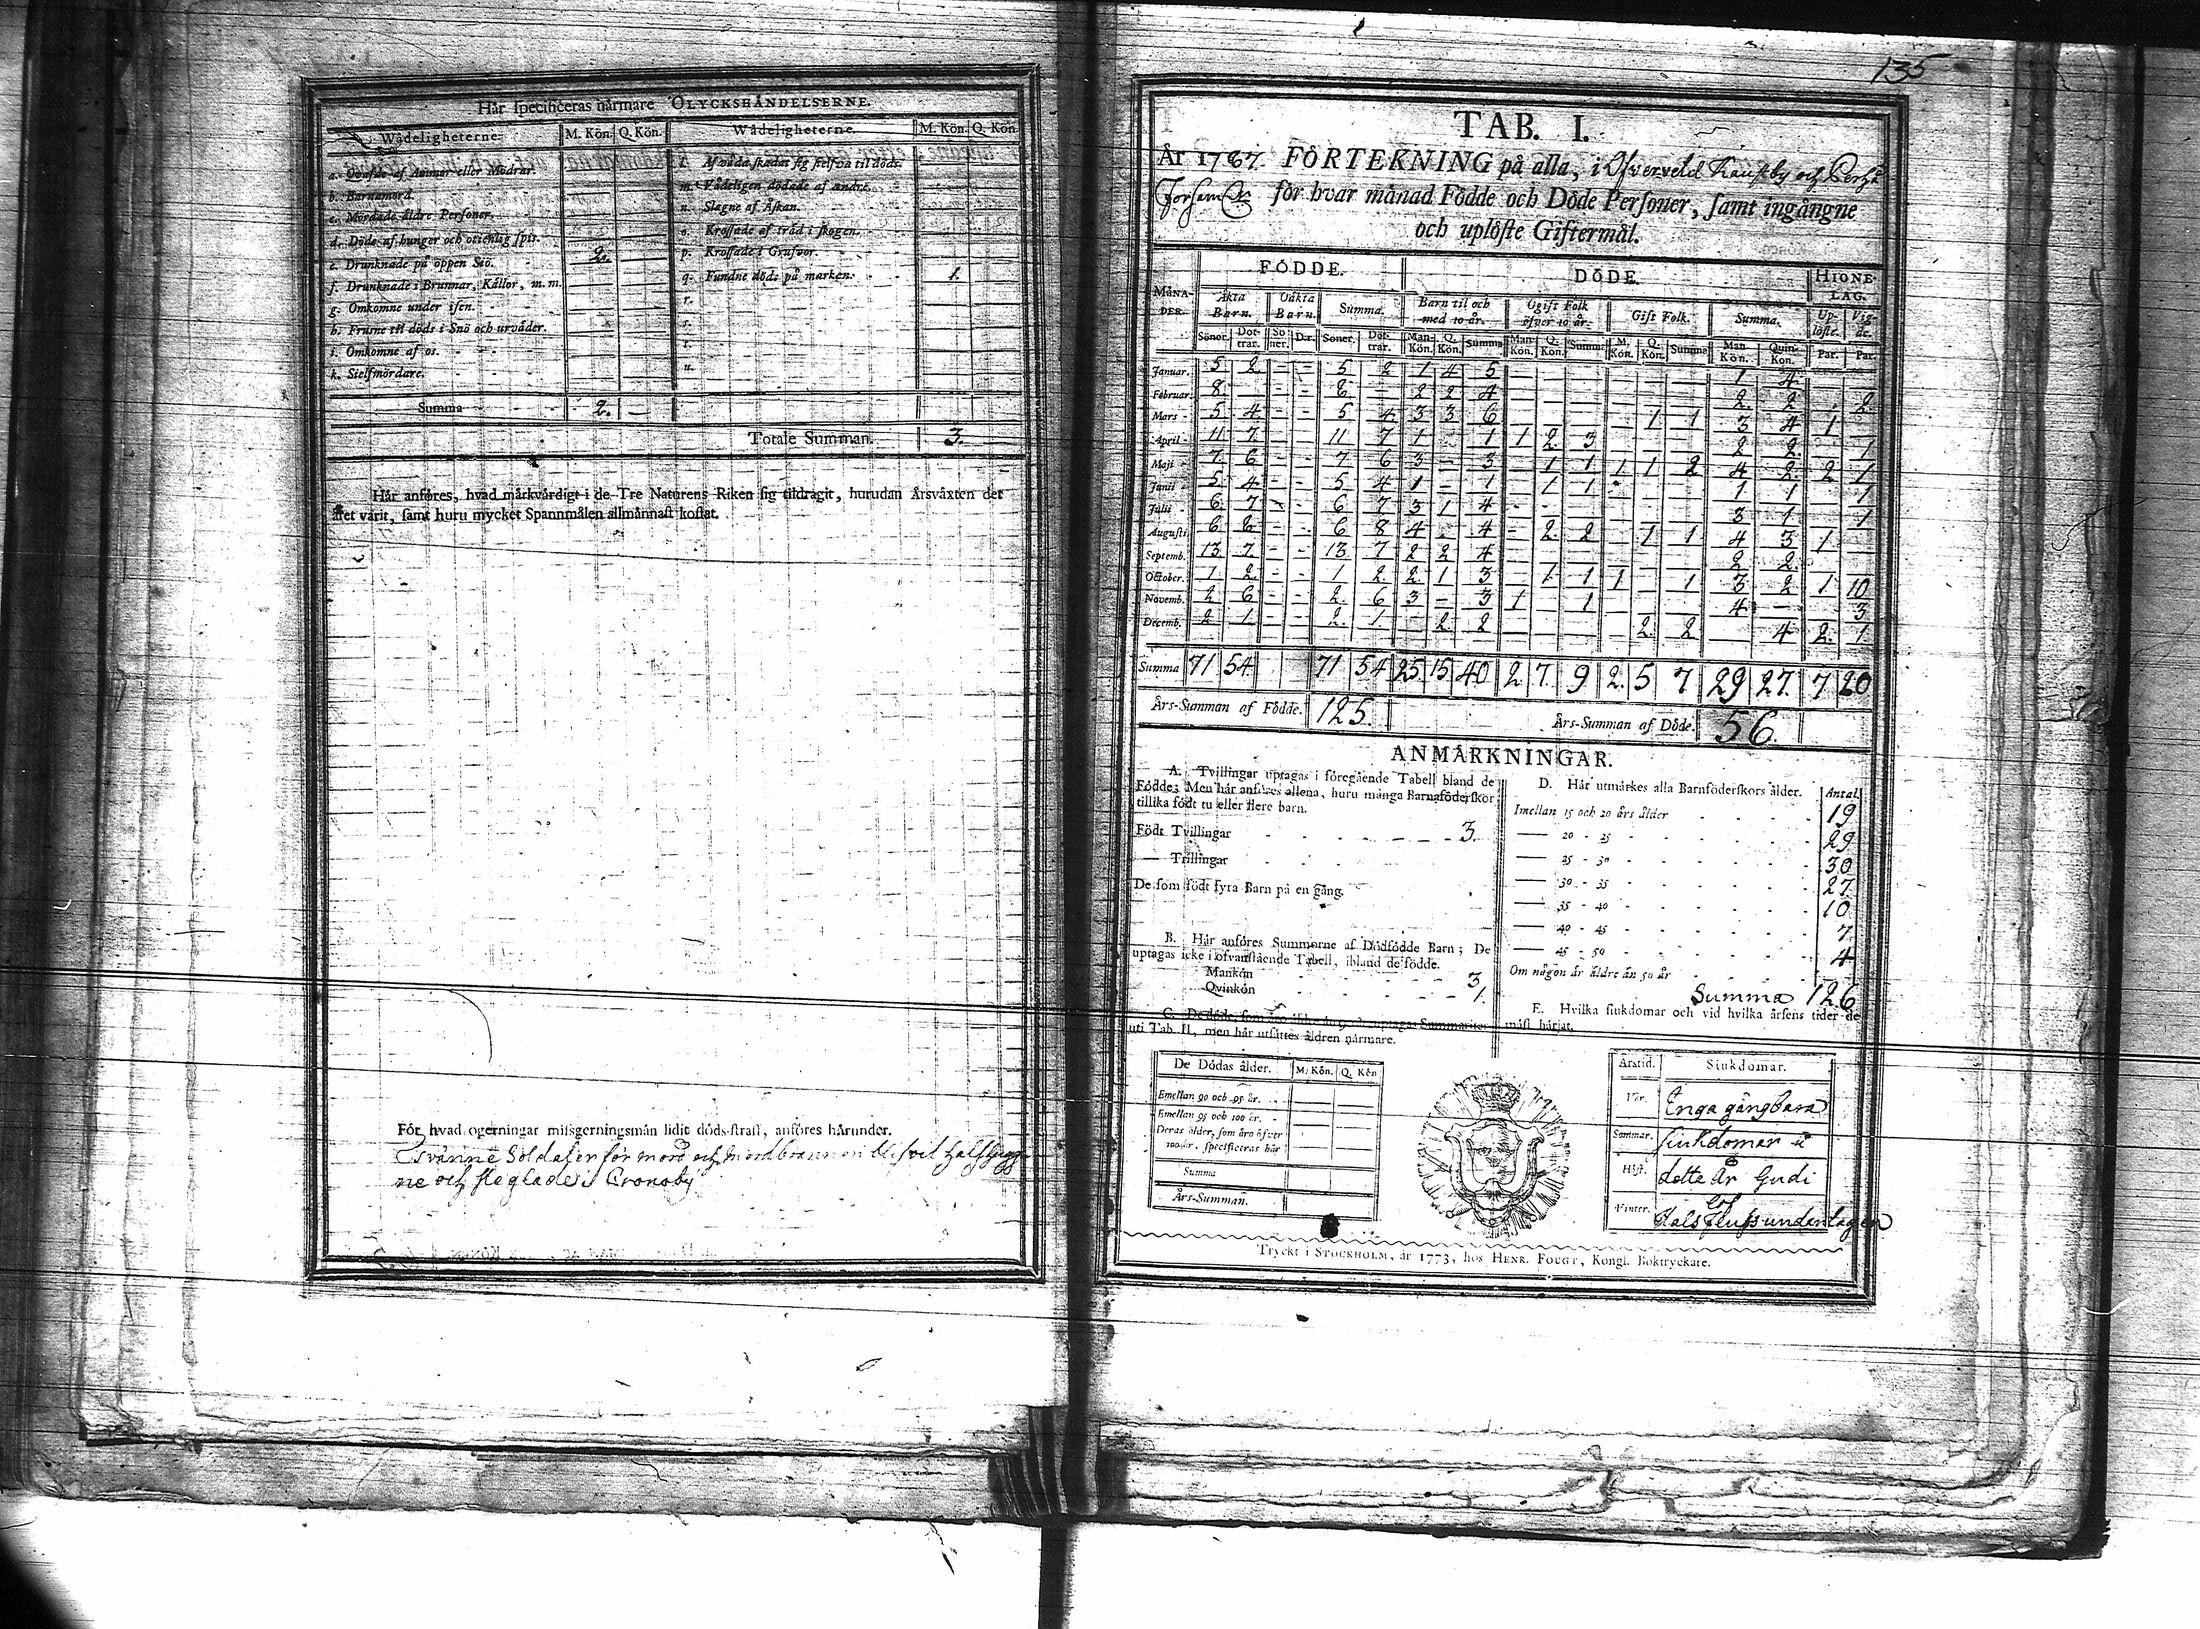 Hår specificeras nårmare OLYCKSHÅNDELSERNE.
Wådeligheterne. M. Kön. Q. Kön. Wådeligheterne. M. Kön. Q. Kön.
a. Qvafde af Ammor eller Mödrar.
b. Barnamord.
c. Mördade åldre Personer.
d. Döde af hunger och otienlig spis.
e. Drunknade på öppen Siö. 2.
f. Drunknade i Brunnar, Kållor, m. m.
g. Omkomne under isen.
h. Frusne til döds i Snö och urvåder.
i. Omkomne af os.
k. Sielfmördare.
l. Af våda skadat sig sielfva til döds.
m. Vådeligen dödade af andre.
n. Slagne af Åskan.
o. Krossade af tråd i skogen.
p. Krossade i Grufvor.
q. Fundne döde på marken. 1.
r.
s.
t.
u.
Summa 2. —
Totale Summan. 3.
Hår anföres, hvad mårkvårdigt i de Tre Naturens Riken sig tildragit, hurudan Årsvåxten det
året varit, samt huru mycket Spannmålen allmånnast kostat.
För hvad ogerningar missgerningsmån lidit döds-straff, anföres hårunder.
Tvänne Soldater för mord och mordbrännen blefvit halshugg-
ne och steglade i Cronoby
135
TAB. I.
År 1787. FÖRTEKNING på alla, i Öfverveld Kaustby och Perhå
Forsaml. för hvar månad Födde och Döde Personer, samt ingångne
och uplöste Giftermål.
FÖDDE. DÖDE. HIONE-LAG.
MÅNA-DER. Åkta Barn. Oåkta Barn. Summa. Barn til och med 10 år. Ogift Folk öfver 10 år. Gift Folk. Summa. Up-löste. Vig-de.
Söner. Dot-trar. So-ner. D:r. Söner. Dot-trar. Man-Kön. Q. Kön. Summa Man-Kön. Q. Kön. Summa M. Kön. Q. Kön. Summa Man Kön. Quin-Kön. Par. Par.
Januar. 5 2 - - 5 2 1 4 5 — — — — — — 1 4
Februar. 8 - - 8 - 2 2 4 — — — — — — 2 2 2
Mars 5 4 - - 5 4 3 3 6 — — — 1 1 3 4 1
April 11 7 - - 11 7 1 1 1 2 3 — — — 2 2 1
Maji 7 6 - - 7 6 3 - 3 - 1 1 1 1 2 4 2 2 1
Junii 5 4 - - 5 4 1 - 1 - 1 1 - — — 1 1 1
Julii 6 7 - - 6 7 3 1 4 - — — — — — 3 1 1
Augusti 6 8 - - 6 8 4 - 4 - 2 2 - 1 1 4 3 1
Septemb. 13 7 - - 13 7 2 2 4 — — — — — — 2 2
October. 1 2 - - 1 2 2 1 3 1 1 1 1 3 2 1 10
Novemb. 2 6 - - 2 6 3 - 3 1 - 1 — — — 4 - 3
Decemb. 2 1 - - 2 1 - 2 2 — — — 2 2 — 4 2 1
Summa 71 54 71 54 25 15 40 2 7 9 2 5 7 29 27 7 20
Års-Summan af Födde. 125. Års-Summan af Döde. 56.
ANMÅRKNINGAR.
A. Tvillingar uptagas i föregående Tabell bland de
Födde; Men hår anföres allena, huru många Barnaföderskor
tillika födt tu eller flere barn.
Födt Tvillingar 3.
— Trillingar
De som födt fyra Barn på en gång.
B. Hår anföres Summorne af Dödfödde Barn; De
uptagas icke i ofvanstående Tabell, ibland de födde.
Mankön 3
Qvinkön 1.
uti Tab. II, men hår utsåttes åldren nårmare.
De Dödas ålder. M. Kön. Q. Kön
Emellan 90 och 95 år.
Emellan 95 och 100 år.
Deras ålder, som åro öfver
100 år, specificeras hår
Summa
Års-Summan.
D. Hår utmårkes alla Barnföderskors ålder. Antal.
Imellan 15 och 20 års ålder 19
— 20 - 25 29
— 25 - 30 30
— 30 - 35 27
— 35 - 40 10
— 40 - 45 7
— 45 - 50 4
Om någon år åldre ån 50 år
Summa 126
E. Hvilka siukdomar och vid hvilka årsens tider de
måst hårjat.
Årstid. Siukdomar.
Vår. Inga gångbara
Sommar. siukdomar i
Höst. detta År Gudi
Vinter. lof
Halsflusz undantagen
Tryckt i STOCKHOLM, år 1773, hos HENR. FOUGT, Kongl. Boktryckare.